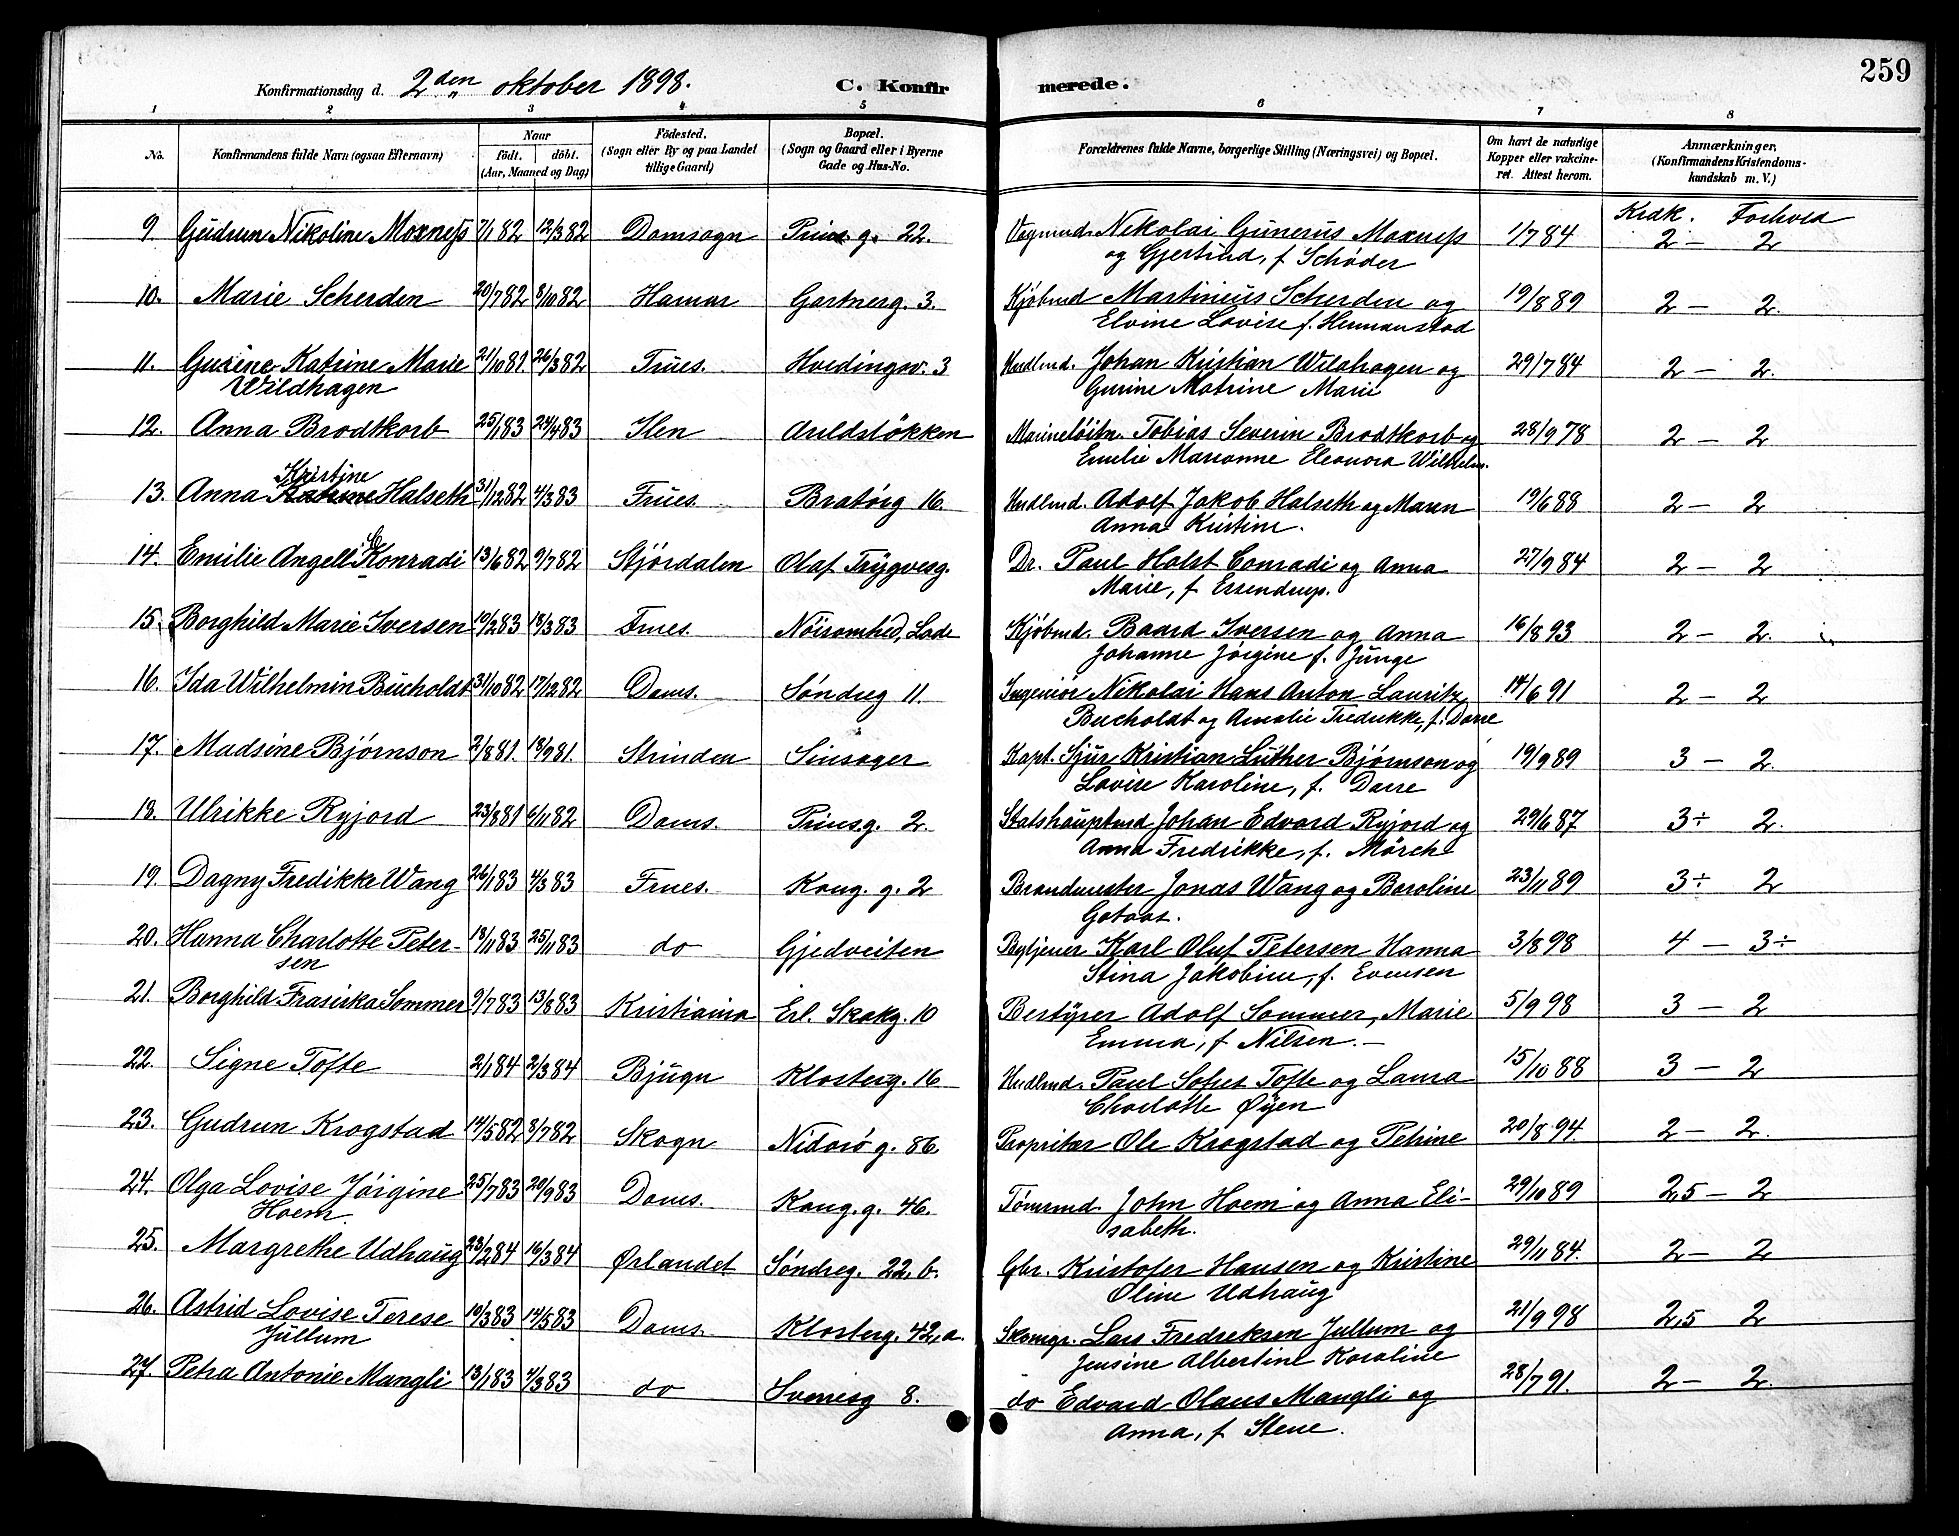 259
Konfirmationsdag d. 2den oktober 1898. C. Konfirmerede.
1 2 3 4 5 6 7 8
No. Konfirmandens fulde Navn (ogsaa Efternavn) Naar født. døbt. (Aar, Maaned og Dag) Fødested. (Sogn eller By og paa Landet tillige Gaard) Bopæl. (Sogn og Gaard eller i Byerne Gade og Hus-No. Forældrenes fulde Navne, borgerlige Stilling (Næringsvei) og Bopæl. Om havt de naturlige Kopper eller vakcineret. Attest herom. Anmærkninger, (Konfirmandens Kristendomskundskab m. V.)
Krdk. Forhold
9. Gudrun Nikoline Moxness 7/1 82 12/3 82 Domsogn Prins g. 22. Vognmd. Nikolai Gunerus Moxness 1/7 84 2 — 2
og Gjertrud, f Schøder
10. Marie Scherden 20/7 82 8/10 82 Hamar Gartnerg. 3. Kjøbmd Martinius Scherden og 19/8 89 2 — 2.
Elvine Lovise f. Hermanstad
11. Gurine Katrine Marie 21/10 81. 26/3 82 Frues. Hvedingsv. 3 Hndlmd. Johan Kristian Wildhagen og 29/7 84 2 — 2.
Wildhagen Gurine Matrine Marie
12. Anna Brodtkorb 25/1 83 24/4 83 Ilen Arildsløkken Marineløitn. Tobias Severin Brodtkorb og 28/9 78 2 — 2
Emelie Marianne Eleonora Wilhelm.
Kristine
13. Anna Katrine Halseth 31/12 82 4/3 83 Frues. Bratørg 16. Hndlmd. Adolf Jakob Halseth og Maren 19/6 88 2 — 2
Anna Kristine.
14. Emilie Angell Konradi C 13/6 82 9/7 82 Stjørdalen Olaf Trygvesg. Dr. Paul Holst Conradi og Anna 27/9 84 2 — 2
Marie, f Essendrup.
15. Borghild Marie Iversen 19/2 83 18/3 83 Frues. Nøisomhed, Lade Kjøbmd. Baard Iversen og Anna 16/8 93 2 — 2.
Johanne Jørgine f. Junge
16. Ida Wilhelmin Bucholdt 31/10 82 17/12 82 Doms. Søndreg 11. Ingeniør Nikolai Hans Anton Lauritz 14/6 91 2 — 2
Bucholdt og Amalie Fredrikke, f. Darre
17. Madsine Bjørnson 2/8 81. 18/9 81. Strinden Sinsager Kapt. Sjur Kristian Luther Bjørnson og 19/9 89 3 — 2.
Lovise Karoline, f. Darre
18. Ulrikke Ryjord 23/8 81 6/11 82 Doms. Prinsg. 2. Statshauptmd Johan Edvard Ryjord og 29/6 87 3÷ 2.
Anna Fredrikke, f. Mørch
19. Dagny Fredikke Wang 26/1 83 4/3 83 Frues. Kong. g. 2 Brandmester Jonas Wang og Beroline 23/11 89 3÷ 2
Gotaas.
20. Hanna Charlotte Peter- 18/11 83 25/11 83 do Gjedveiten Bytjener Karl Oluf Petersen Hanna 3/8 98 4 — 3÷
sen Stina Jakobine, f. Evensen
21. Borghild Frasiska Sommer 9/7 83 13/8 83 Kristiania Erl. Skakg. 10 Bestyrer Adolf Sommer, Marie 5/9 98 3 — 2
Emma, f Nilsen. —
22. Signe Tofte 2/1 84 2/3 84 Bjugn Klosterg. 16 Hndlmd. Paul Sofus Tofte og Laura 15/10 88 3 — 2
Charlotte Øyen
23. Gudrun Krogstad 14/5 82 8/7 82 Skogn Nidarø g. 86 Propritær Ole Krogstad og Petrine 20/8 94. 2 — 2.
24. Olga Lovise Jørgine 25/7 83 20/9 83 Doms. Kong. g. 46. Tømrmd. John Hoem og Anna Eli- 29/10 89 2,5 — 2
Hoem. sabeth.
25. Margrethe Udhaug 23/2 84 16/3 84 Ørlandet Søndreg. 22, b. Gbr. Kristofer Hansen og Kristine 29/11 84. 2 — 2
Oline Udhaug
26. Astrid Lovise Terese 10/3 83 14/5 83 Doms. Klosterg. 42, a. Skomgr. Lars Fredreksen Jullum og 21/9 98 2,5 2
Jullum Jensine Albertine Karoline
27. Petra Antonie Mangli 13/1 83 4/3 83 do Svenesg 8. do Edvard Olaus Mangli og 28/7 91. 2 — 2.
Anna, f Stene.